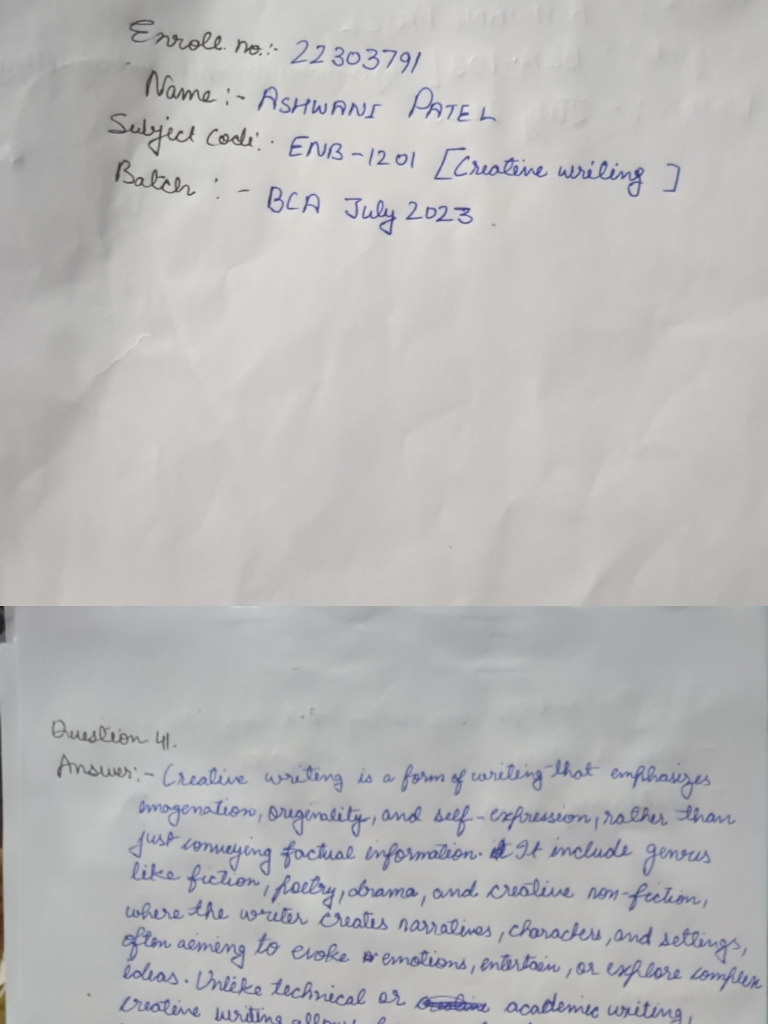 Enroll. no.:- 22303791
Name :- ASHWANI PATEL
Subject code:- ENB-1201 [Creative writing ]
Batch :- BCA July 2023.
Question 41.
Answer:- Creative writing is a form of writing that emphasizes
imogenation, oregenality, and self-expression, rather than
just conveying factual information. It include genres
like fiction, poetry, drama, and creative non-fiction,
where the writer creates narratives, characters, and settings,
often aeming to evoke emotions, entertain, or explore complex
ideas. Unlike technical or academic writing,
creative writing